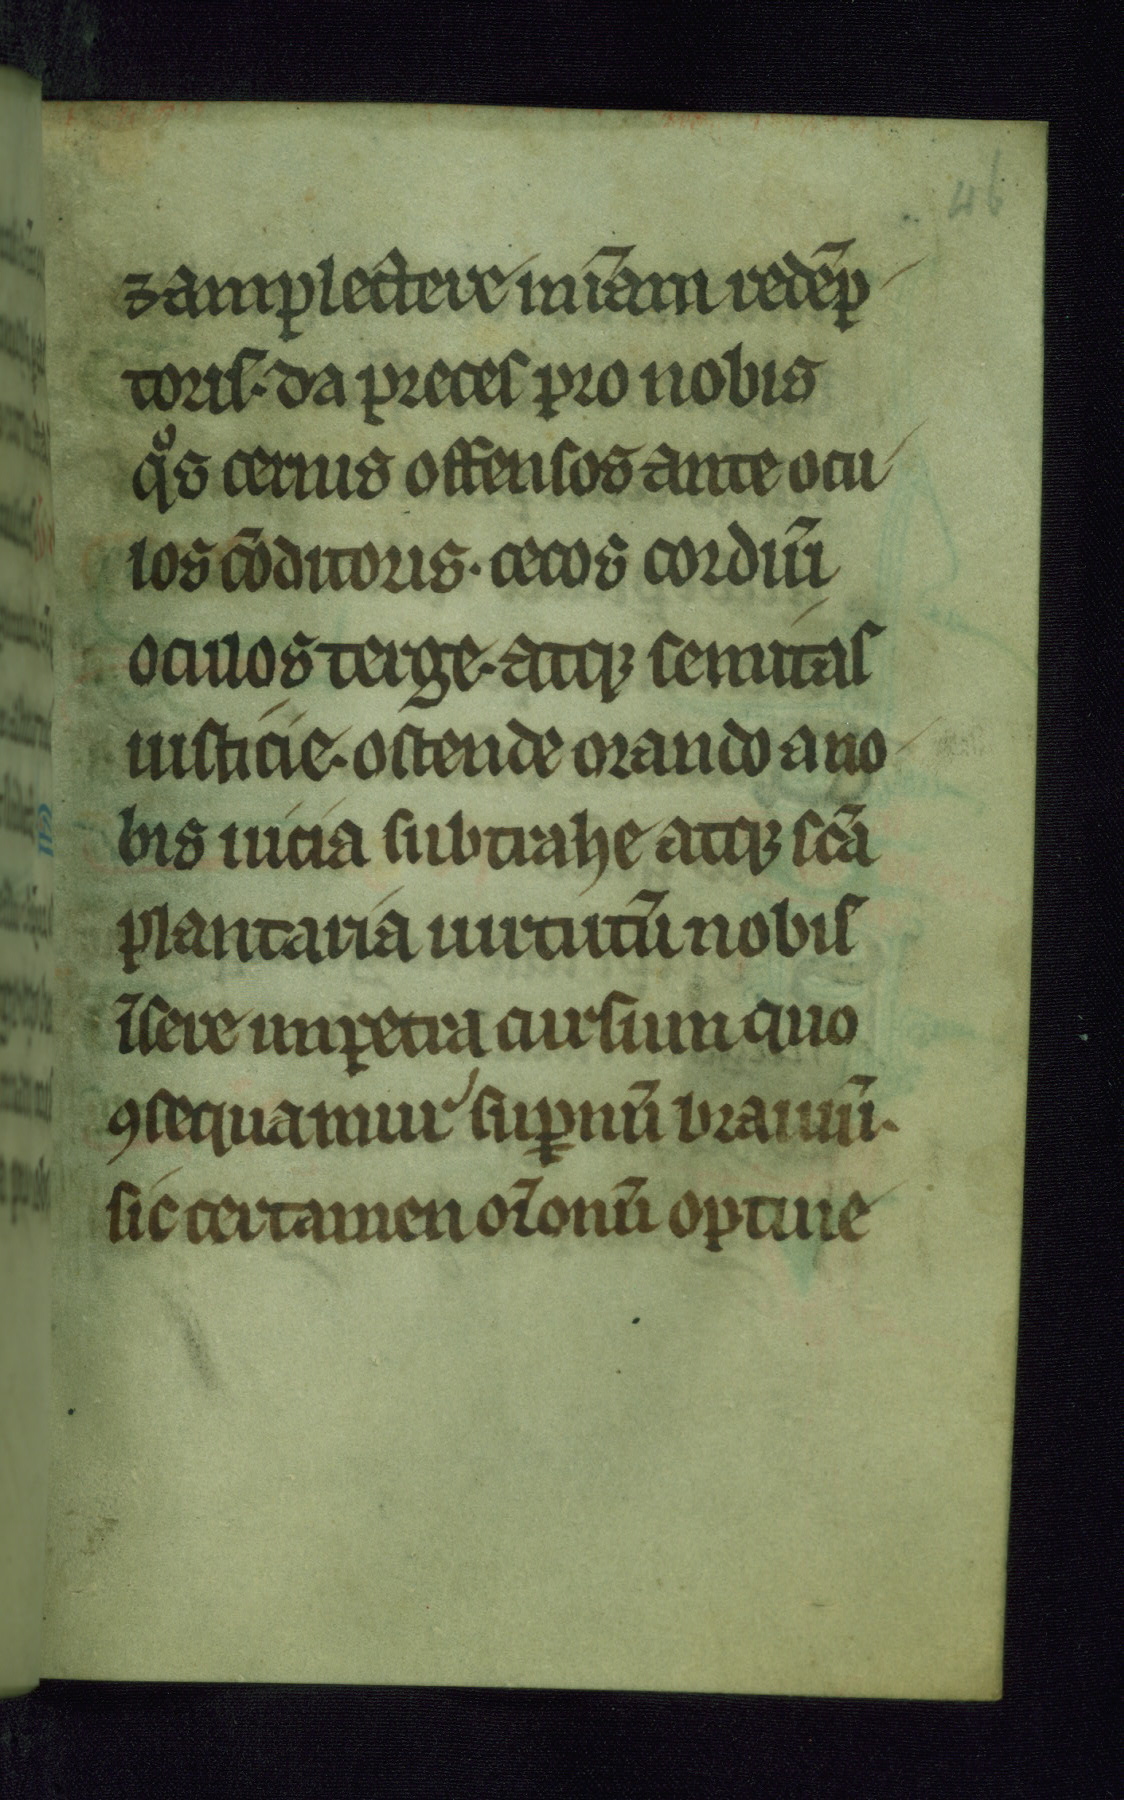 46
⁊ amplectere mīam redēp
toris. da preces pro nobis
qͦs cernis offensos ante ocu
los cōditoris. cecos cordiū
oculos terge. atqꝫ semitas
iusticie. ostende orando a no
bis uicia subtrahe atqꝫ scā
plantaria uirtutū nobis
īsere impetra cursum quo
ꝯsequamur suꝑnū brauiū.
sic certamen or̄onū optine